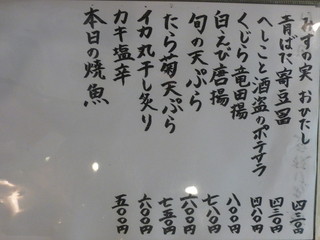 みずの実 おひたし 四三〇円
青ばた寄豆冨 四三〇円
へしこと酒盗のポテサラ 四八〇円
くじら竜田揚 八〇〇円
白えび唐揚 七八〇円
旬の天ぷら 六〇〇円
たら菊天ぷら 七五〇円
イカ丸干し炙り 六〇〇円
カキ塩辛 五〇〇円
本日の焼魚